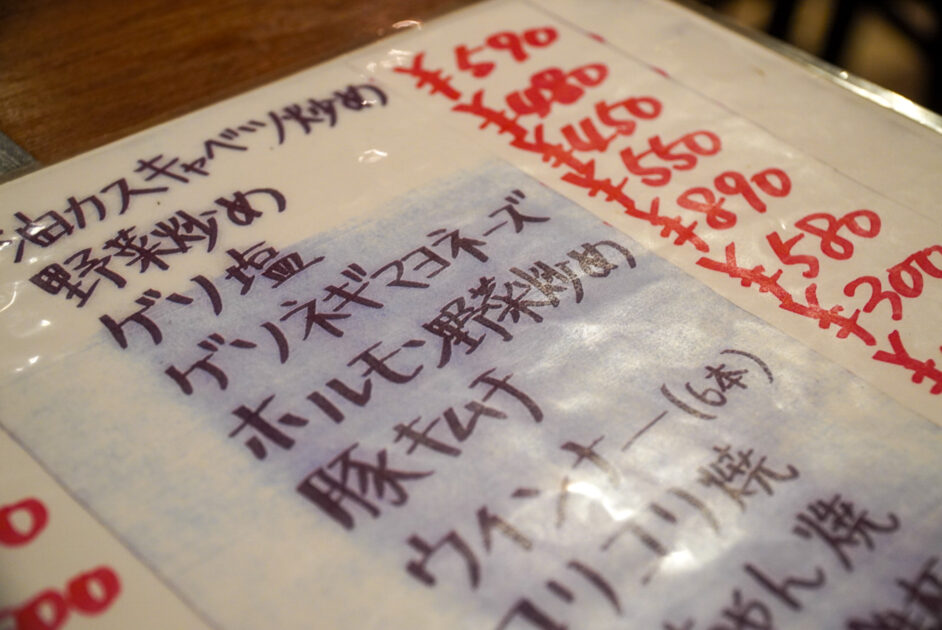 油カスキャベツ炒め ¥590
野菜炒め
ゲソ塩 ¥450
ゲソネギマヨネーズ ¥550
ホルモン野菜炒め ¥890
豚キムチ ¥580
ウインナー(6本) ¥300
コリコリ焼 ¥
ちゃん焼